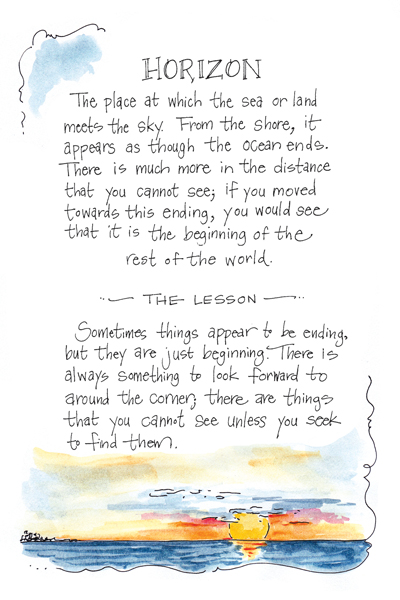 HORIZON
The place at which the sea or land
meets the sky. From the shore, it
appears as though the ocean ends.
There is much more in the distance
that you cannot see; if you moved
towards this ending, you would see
that it is the beginning of the
rest of the world.
THE LESSON
Sometimes things appear to be ending,
but they are just beginning. There is
always something to look forward to
around the corner; there are things
that you cannot see unless you seek
to find them.